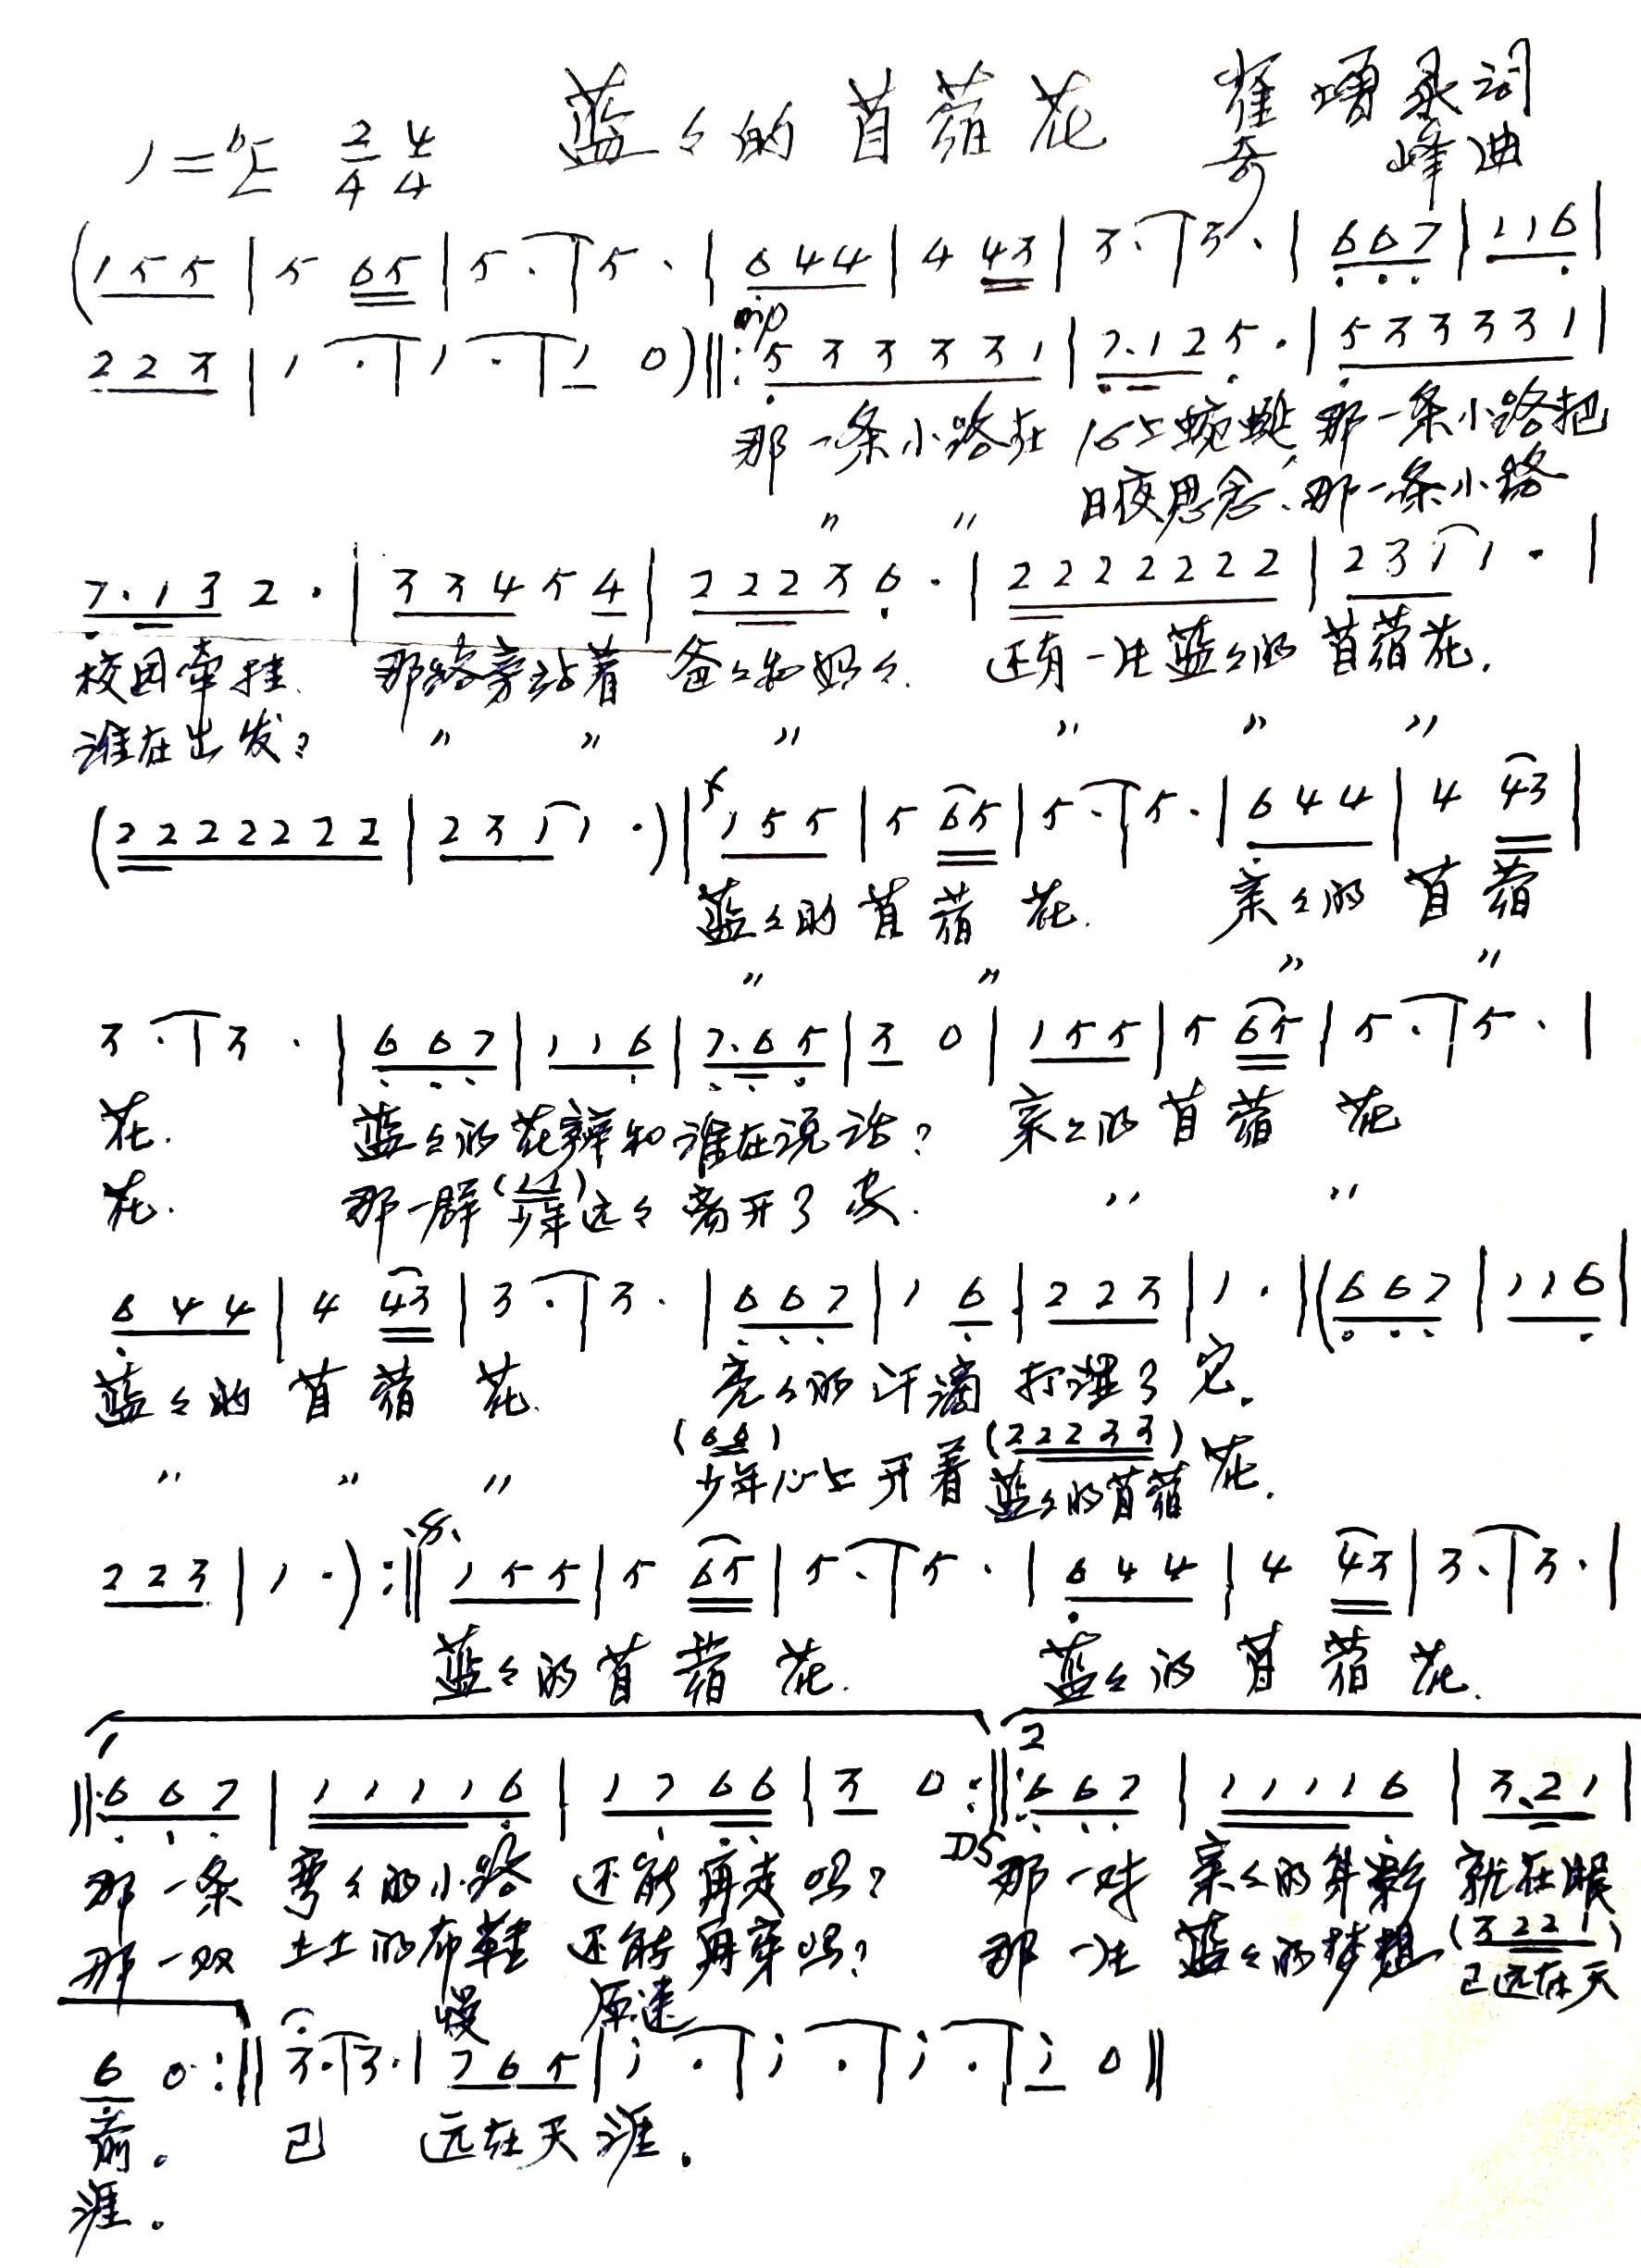 蓝々的苜蓿花 崔增录词
1=♭E 2/4 4/4 奇峰曲
(1 5 5 | 5 6 5 | 5 · | 5 · | 6 4 4 | 4 4 3 | 3 · | 3 · | 6 6 7 | 1 1 6 |
mp
2 2 3 | 1 · | 1 · | 1 0 )‖: 5 3 3 3 3 1 | 7 · 1 2 5 · | 5 3 3 3 3 1 |
那一条小路在 心上蜿蜒, 那一条小路把
〃 〃 日夜思念、那一条小路
7 · 1 3 2 · | 3 3 4 5 4 | 2 2 2 3 6 · | 2 2 2 2 2 2 2 | 2 3 1 1 · |
校园牵挂. 那路旁站着 爸々和妈々. 还有一片蓝々的 苜蓿花.
谁在出发? 〃 〃 〃 〃 〃 〃
f
(2 2 2 2 2 2 2 | 2 3 1 1 · ) | 1 5 5 | 5 6 5 | 5 · | 5 · | 6 4 4 | 4 4 3 |
蓝々的 苜蓿 花. 亲々的 苜蓿
〃 〃 〃 〃
3 · | 3 · | 6 6 7 | 1 1 6 | 7 · 6 5 | 3 0 | 1 5 5 | 5 6 5 | 5 · | 5 · |
花. 蓝々的花瓣和谁在说话? 亲々的 苜蓿 花
花. 那一群(1 1)少年远々离开了家. 〃 〃
6 4 4 | 4 4 3 | 3 · | 3 · | 6 6 7 | 1 6 | 2 2 3 | 1 · |(6 6 7 | 1 1 6 |
蓝々的 苜蓿 花. 亮々的汗滴 打湿了它.
(6 6) (2 2 2 3 3)
〃 〃 〃 少年心上开着 蓝々的苜蓿 花.
2 2 3 | 1 · ) :‖ 1 5 5 | 5 6 5 | 5 · | 5 · | 6 4 4 | 4 4 3 | 3 · | 3 · |
蓝々的 苜蓿 花. 蓝々的 苜蓿 花.
1 2
‖: 6 6 7 | 1 1 1 1 6 | 1 7 6 6 | 3 0 :‖: 6 6 7 | 1 1 1 1 6 | 3 · 2 1 |
DS
那一条 弯々的小路 还能再走吗? 那一对 亲々的身影 就在眼
那一双 土土的布鞋 还能再穿吗? 那一片 蓝々的梦想 (3 2 2 1) 已远在天
慢 原速
6 0 :‖ 3 · | 3 · | 7 6 5 | i · | i · | i · | i 0 ‖
前。 已 远在天涯.
涯。